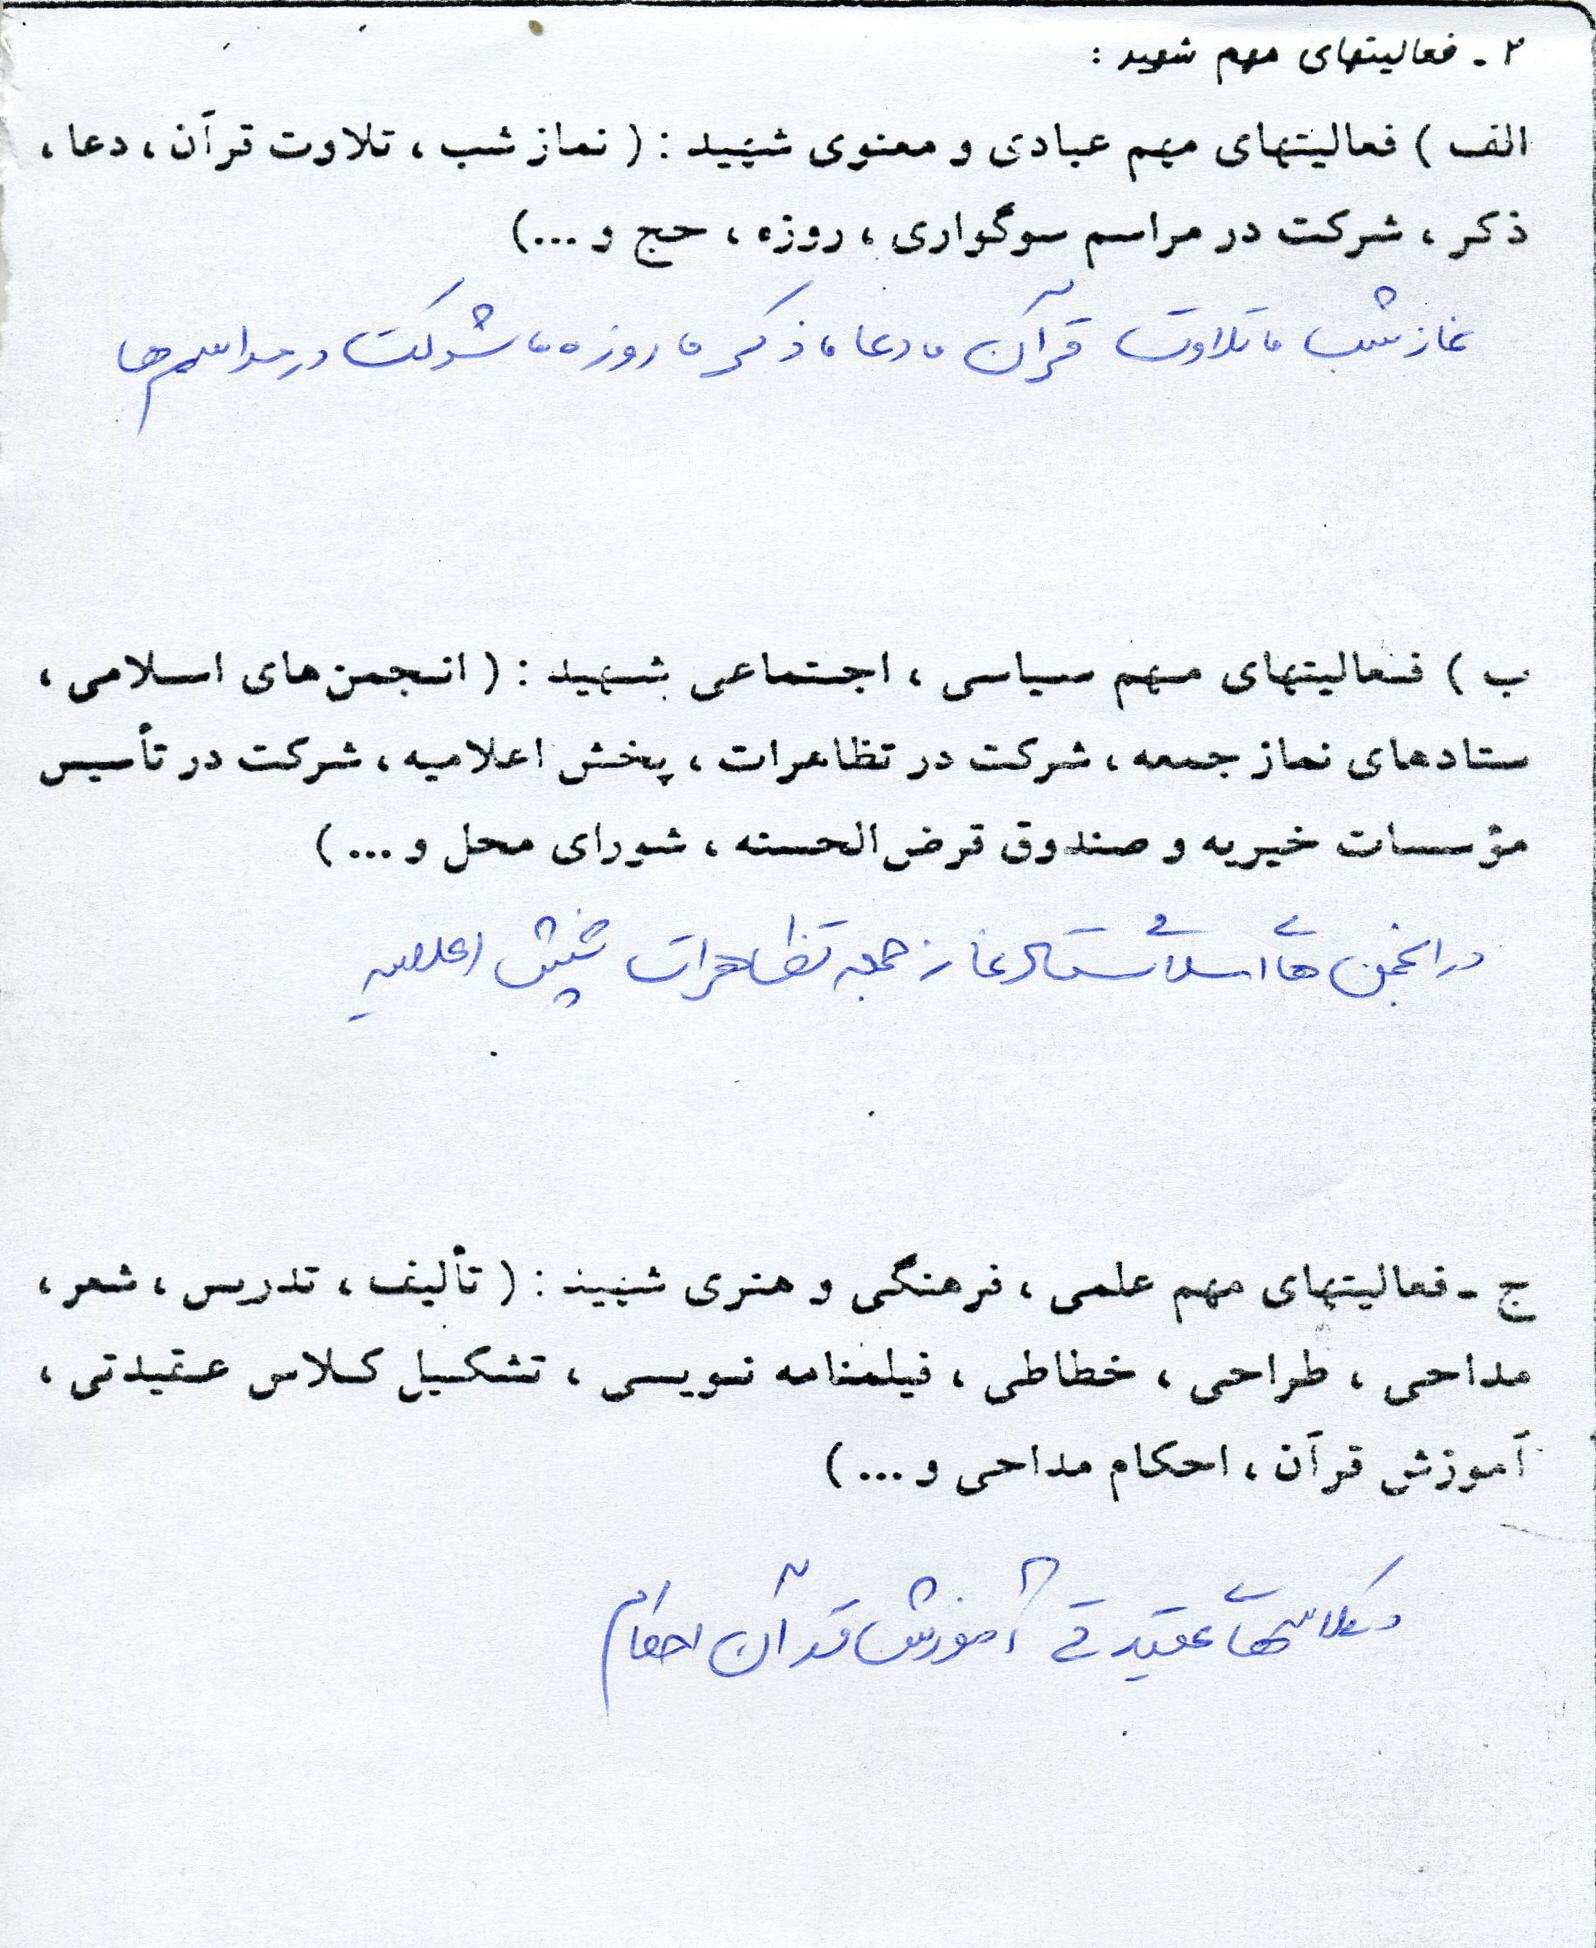 ۲ - فعالیتهای مهم شهید :
الف ) فعالیتهای مهم عبادی و معنوی شهید : ( نماز شب ، تلاوت قرآن ، دعا ،
ذکر ، شرکت در مراسم سوگواری ، روزه ، حج و ...)
نماز شب ، تلاوت قرآن ، دعا ، ذکر ، روزه ، شرکت در مراسم ها
ب ) فعالیتهای مهم سیاسی ، اجتماعی شهید : ( انجمن های اسلامی ،
ستادهای نماز جمعه ، شرکت در تظاهرات ، پخش اعلامیه ، شرکت در تأسیس
مؤسسات خیریه و صندوق قرض الحسنه ، شورای محل و ... )
در انجمن های اسلامی ستاد نماز جمعه تظاهرات پخش اعلامیه
ج - فعالیتهای مهم علمی ، فرهنگی و هنری شهید : ( تألیف ، تدریس ، شعر ،
مداحی ، طراحی ، خطاطی ، فیلمنامه نویسی ، تشکیل کلاس عقیدتی ،
آموزش قرآن ، احکام مداحی و ... )
در کلاسهای عقیدتی آموزش قرآن احکام